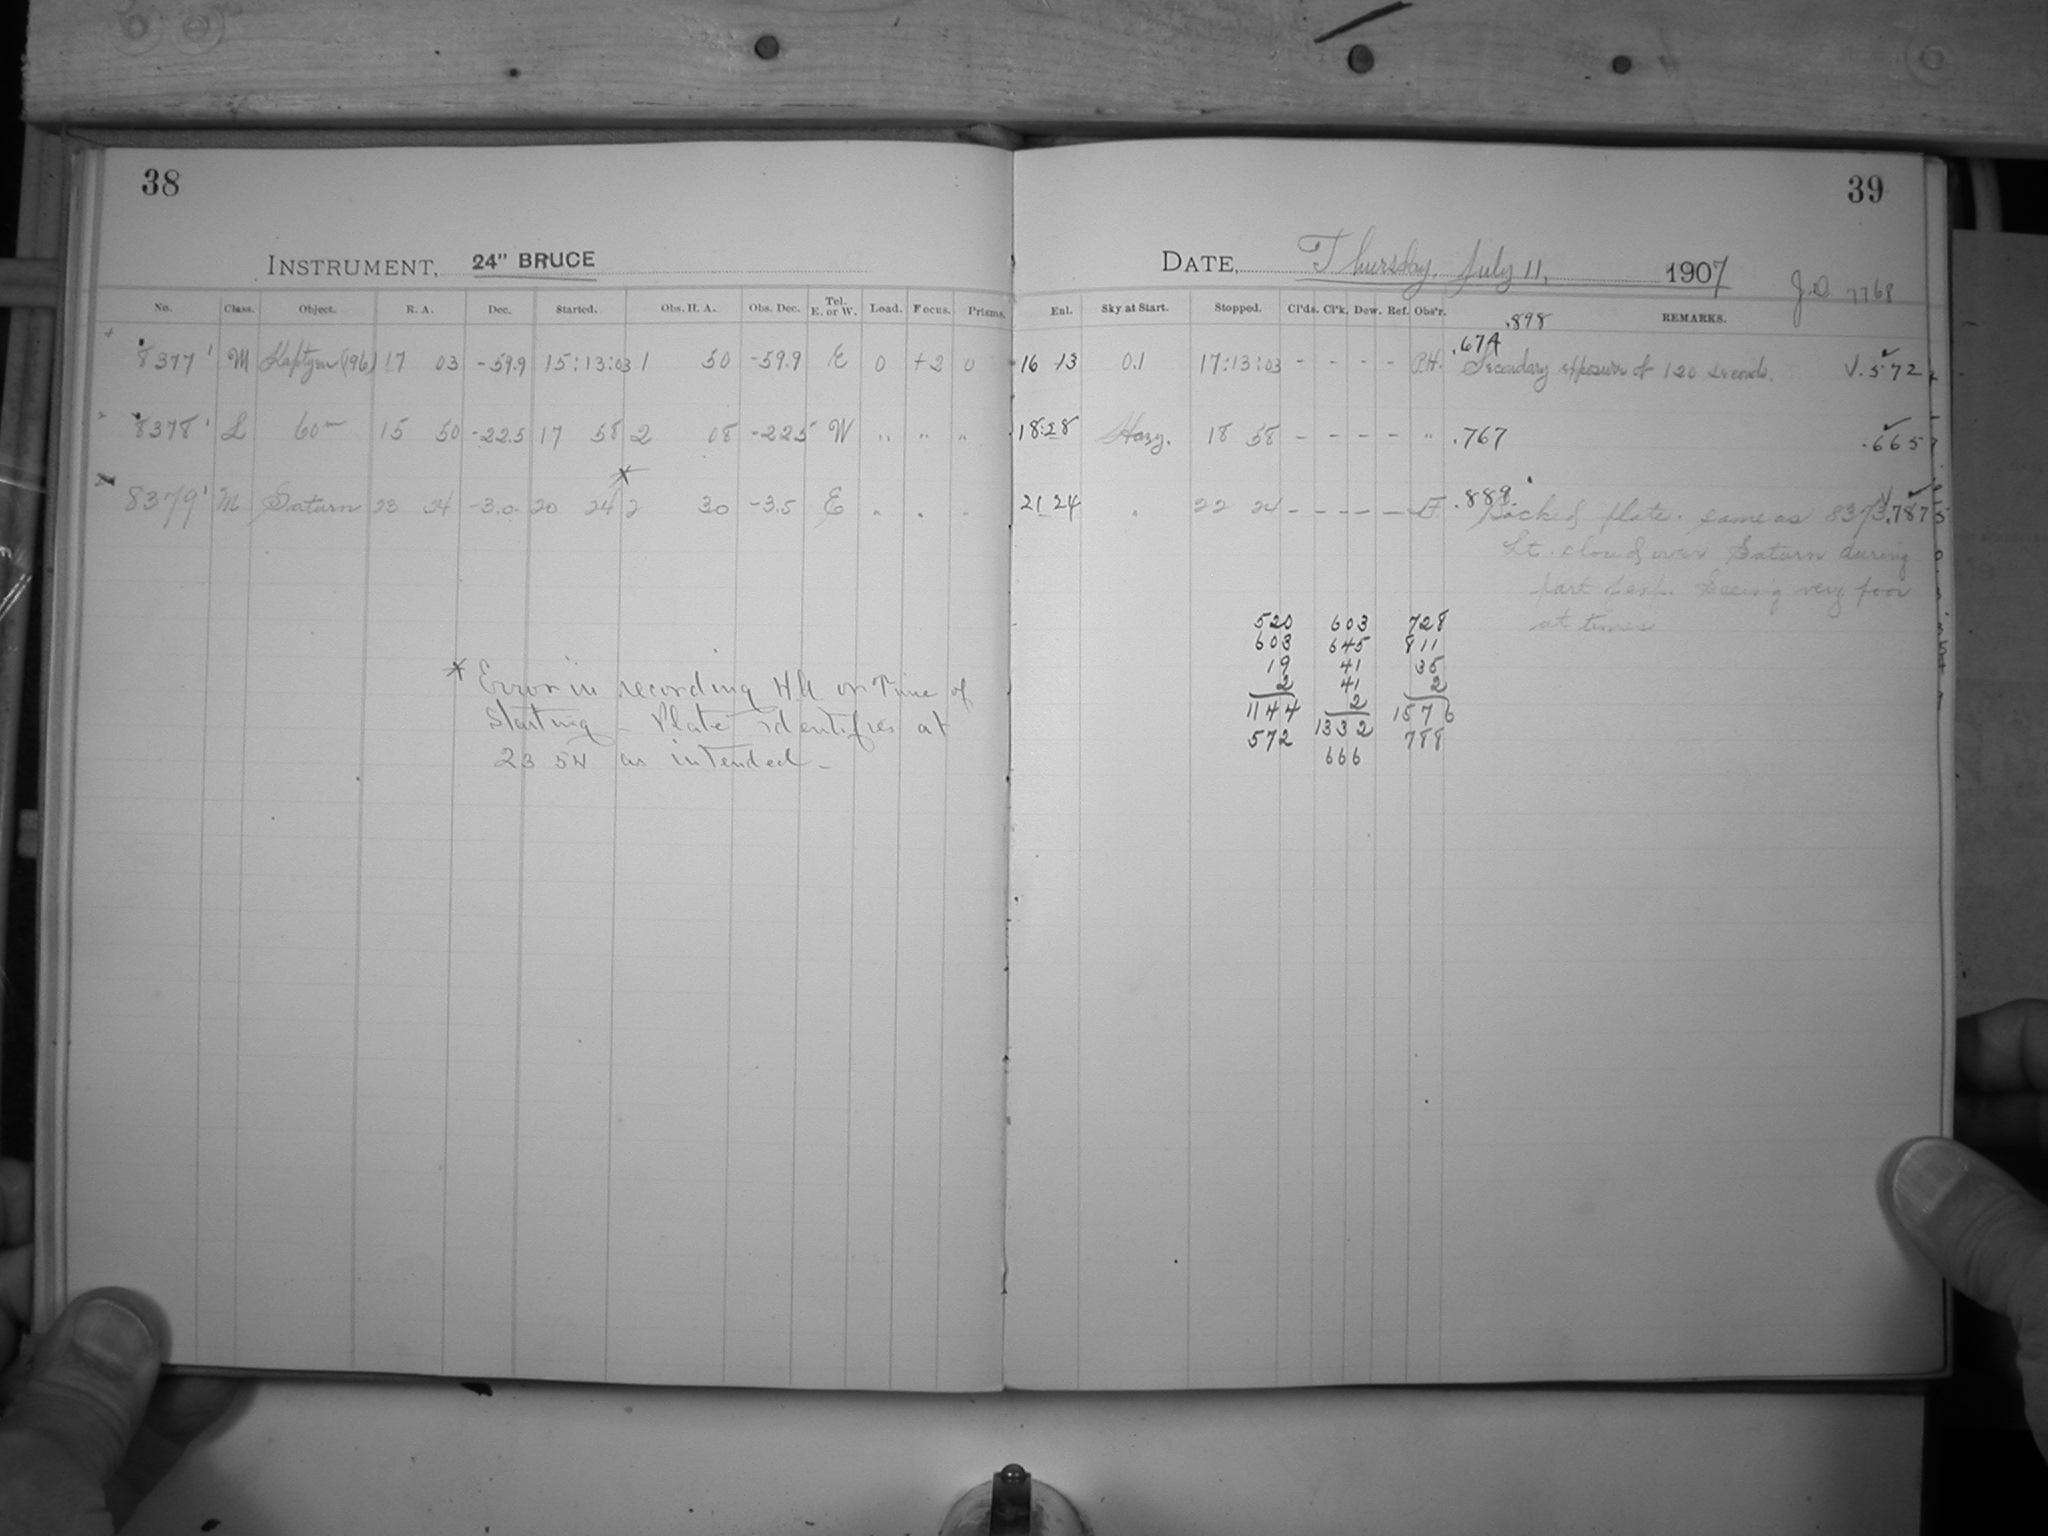 38
39
INSTRUMENT, 24" BRUCE
DATE, Thursday, July 11, 1907
J.D. 7768
No. Class. Object. R. A. Dec. Started. Obs. H. A. Obs. Dec. Tel. E. or W. Load. Focus. Prisms. Enl. Sky at Start. Stopped. Cl'ds. Cl'k. Dew. Ref. Obs'r. REMARKS.
.898
.674
8377 M Kapteyn (196) 17 03 -59.9 15:13:03 1 50 -59.9 E 0 +2 0 16 13 0.1 17:13:03 - - - - P.H. Secondary exposure of 120 seconds. V .572
8378 L 60m 15 50 -22.5 17 58 2 08 -22.5 W " " " 18:28 Hazy. 18 58 - - - - " .767 .665
*
8379 M Saturn 23 54 -3.0 20 24 2 30 -3.5 E " " " 21 24 " 22 24 - - - - .889 Backed plate. same as 8373 V .787
Lt. cloud over Saturn during
part of exp. Seeing very poor
at times
520 603 728
603 645 811
19 41 35
2 41 2
1144 2 1576
572 1332 788
666
* Error in recording H A or Time of
Starting - Plate identifies at
23 54 as intended -